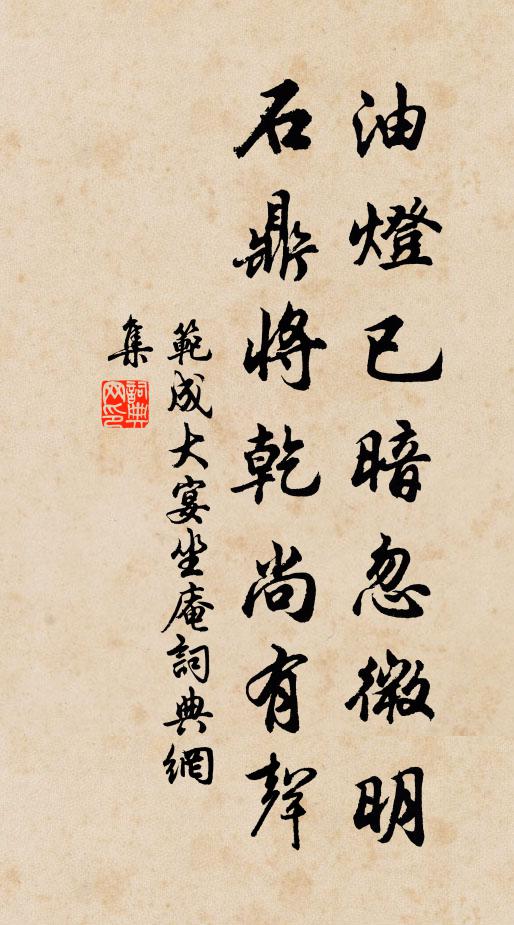 油燈已暗忽微明
石鼎將乾尚有聲
範成大宴坐庵詞典網
集
詞典
网印